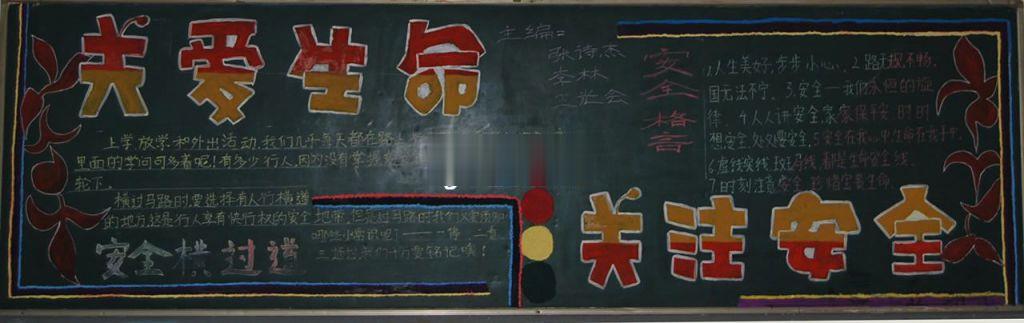 关爱生命
主编=
张诗杰
李林
上学放学和外出活动,我们几乎每天都在路
里面的学问可多着呢!有多少行人,因为没有掌握
轮下。
横过马路时要选择有人行横道
的地方,这是行人享有优先行权的安全地带,但是过马路时我们又须知
哪些小常识呢?——一停二看
三通过,
安全横过道
安全格言
1.人生美好,步步小心。2.路无规不畅,
国无法不宁。3.安全—我们永恒的旋
律。4.人人讲安全,家家保平安,时时
想安全,处处要安全。5.安全在我心中,生命在我手中。
6.虚线实线斑马线,都是生命安全线。
7.时刻注意安全,珍惜宝贵生命。
关注安全